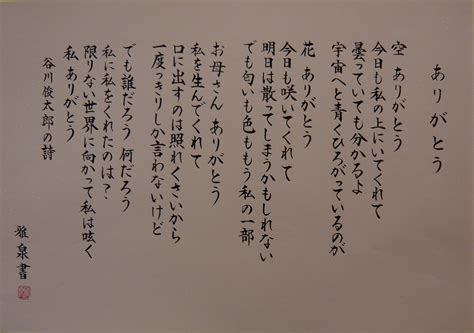 ありがとう
空 ありがとう
今日も私の上にいてくれて
曇っていても分かるよ
宇宙へと青くひろがっているのが
花 ありがとう
今日も咲いてくれて
明日は散ってしまうかもしれない
でも匂いも色ももう私の一部
お母さん ありがとう
私を生んでくれて
口に出すのは照れくさいから
一度っきりしか言わないけど
でも誰だろう 何だろう
私に私をくれたのは?
限りない世界に向かって私は呟く
私 ありがとう
谷川俊太郎の詩
雅泉書